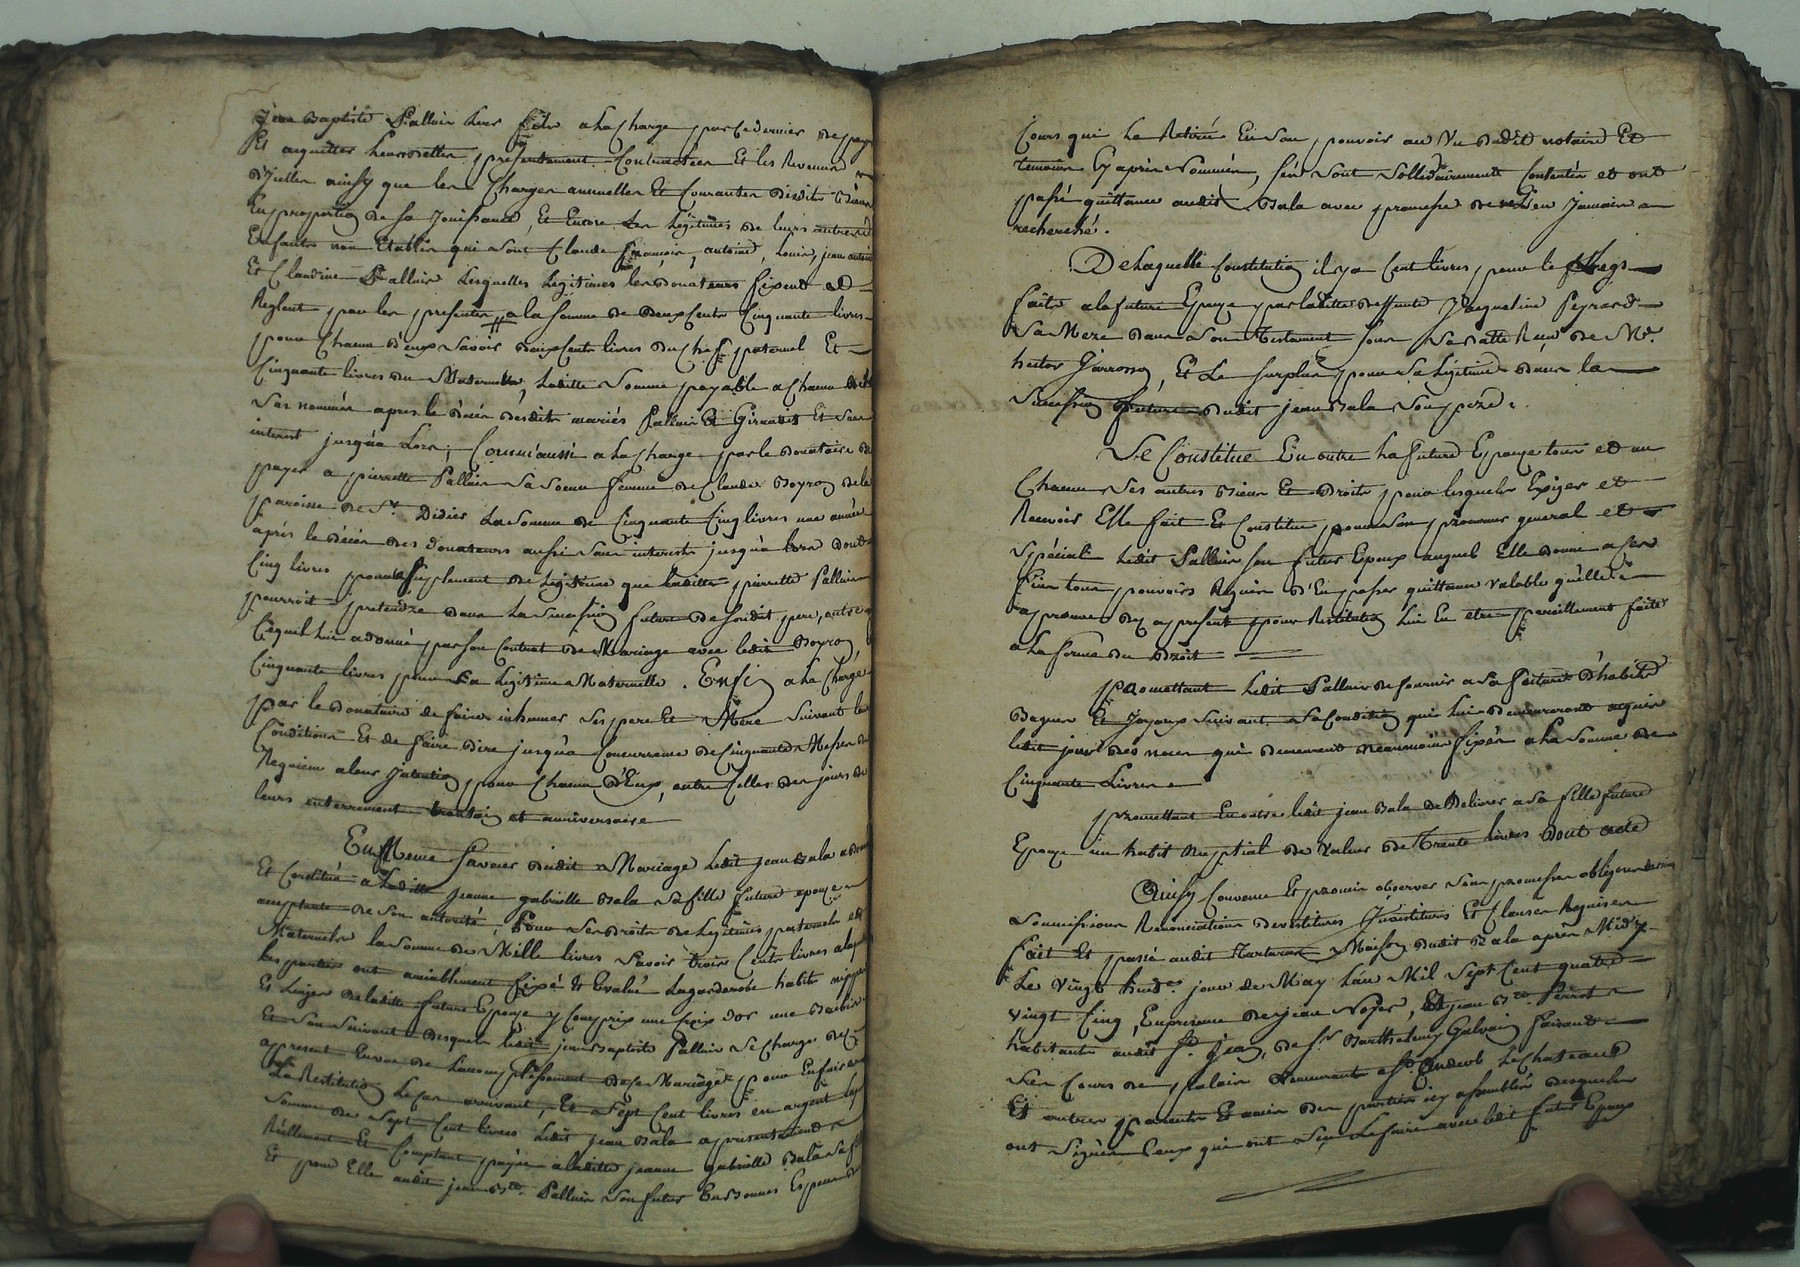 Jean Baptiste Palluis Leur fils a la charge par ce dernier de payer
Et acquitter leurs dettes presentement Contractées Et les Revenus
d'Icelles ainsy que les Charges annuelles Et Courantes desdits Biens
En proportion de sa Jouissance, Et Encore Les Légitimes de leurs autres
Enfants non Etablis qui sont Claude François, antoine, Louis, jean antoine
Et Claudine Palluis Lesquelles Légitimes les donateurs fixent et
Reglent par les presentes a la somme de deux Cents Cinquante livres
pour Chacun d'eux Savoir deux Cents livres du Chef paternel Et
Cinquante livres du Maternel, Laditte Somme payable a Chacun des
Sus nommés apres le décés desdits mariés Palluis Et Giraudet Et sans
interest jusqu'a Lors, Comm'aussi a la Charge par le donataire de
payer a pierrette Palluis Sa Soeur femme de Claude Boyron de la
paroisse de St. Didier La Somme de Cinquante Cinq livres une année
aprés le décés des donateurs aussi sans interests jusqu'a lors dont
Cinq livres pour suplement de Légitime que laditte pierrette Palluis
pourroit pretendre dans La Succession future de Sondit pere, outre
Ce qu'il lui a donné par son Contrat de Mariage avec ledit Boyron,
Cinquante livres pour Sa Légitime Maternelle. Enfin a la Charge
par le donataire de faire inhumer Ses pere Et Mere Suivant leur
Condition Et de faire dire jusqu'a Concurrence de Cinquante Messes de
Requiem a leur Intention pour Chacun d'Eux, outre Celles des jours de
leurs enterrement trentain et anniversaire
En Meme faveur dudit Mariage Ledit Jean Bala a donné
Et Constitué a Laditte Jeanne gabrielle Bala Sa fille future epouse
acceptante de Son autorité, Pour Ses droits de Légitimes paternelle et
Maternelle la Somme de Mille livres Savoir trois Cents livres a laquelle
les parties ont amiablement fixé Et Evalué La garderobe habits nippes
Et Linges de laditte future Epouse y Compris une Croix d'or une
Et Son Suivant desquels ledit jean Baptiste Palluis Se Charge dés
apresent En vue de L'accomplissement de ce Mariage pour En faire
La Restitution Le Cas arrivant, Et Sept Cent livres en argent laquelle
Somme de Sept Cent livres Ledit Jean Bala a presentement
Réellement Et Comptant payée a laditte jeanne gabrielle Bala Sa fille
Et pour Elle audit jean Bte. Palluis Son futur En bonnes Especes de
Cours qui La Retirée En Son pouvoir au Vu dudit notaire Et
temoins Cy après Nommés, s'en Sont Sollidairement Contentés et ont
passé quittance audit Bala avec promesse de n'en Jamais
recherché.
De laquelle Constitution il y a Cent livres pour le Legs
faits a la future Epouse par laditte deffunte Jacqueline Peyrard
Sa Mere dans Son Testament Sous Sa datte Reçu de Me.
hector Jarrosson, Et Le surplus pour Sa Légitime dans la
Succession future dudit jean Bala Son pere.
Se Constitue En outre La future Epouse tous et un
Chacun Ses autres Biens Et droits pour lesquels Exiger et
Recevoir Elle fait Et Constitue pour Son procureur general et
Spécial Ledit Palluis Son futur Epoux auquel Elle donne a ces
fins tous pouvoirs Requis d'En passer quittance valable qu'elle
approuve dez apresent pour Restitution lui En etre pareillement faite
a la forme du Droit
promettant Ledit Palluis de fournir a Sa future d'habits
Bagues Et Joyaux Suivant Sa Condition qui lui demeureront acquis
ledit jour des noces qui demeurent néanmoins fixés a La Somme de
Cinquante Livres
promettant En outre ledit jean Bala de Delivrer a Sa fille future
Epouse un habit Nuptial de valeur de Trente livres dont acte
Ainsy Convenu Et promis observer Sous promesses obligations
Soumissions Renonciations desistitures Investitures Et Clauses Requises
fait Et passé audit Tartaras Maison dudit Bala après Midy
Le vingt huite. jour de May L'an Mil Sept Cent quatre
vingt Cinq, En presence de jean Noyer, Et jean Bte. Perrot
habitants audit St. jean, de Sr. Barthelemy Galvain faisant
Les Cours de palais demeurant a St Andeol Le Chateau
Et autres parents Et amis des parties icy assemblés desquels
ont Signés Ceux qui ont Sçu Le faire avec ledit futur Epoux